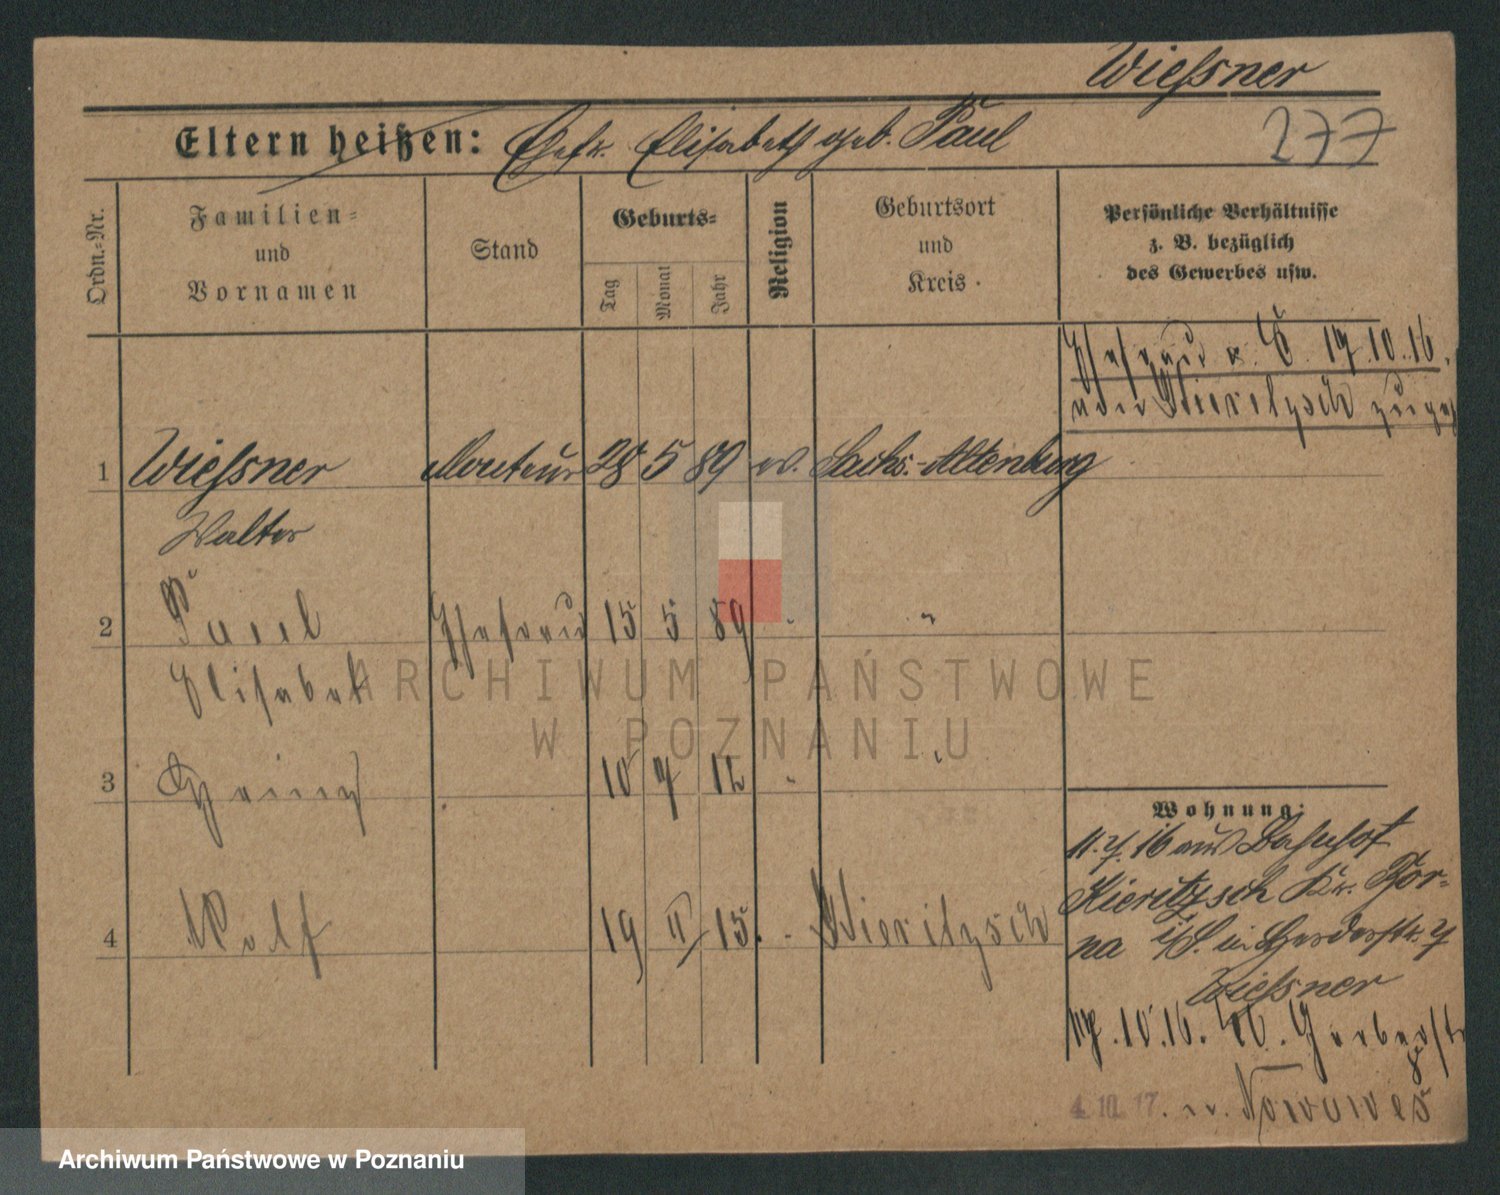 Wießner
Eltern heißen: Ehefr. Elisabeth geb. Paul
277
Ordn.-Nr.
Familien-
und
Vornamen
Stand
Geburts-
Tag
Monat
Jahr
Religion
Geburtsort
und
Kreis
Persönliche Verhältnisse
z. B. bezüglich
des Gewerbes usw.
Ehefrau u. 17.10.16.
Kieritzsch
1 Wießner Monteur 28 5 89 ev. Sachs.-Altenburg
Walter
2 Paul Ehefrau 15 5 89 " "
Elisabet
3 Heinz 10 7 12 " "
4 Wolf 19 II 15. " Kieritzsch
Wohnung:
11.7.16 aus Bahnhof
Kieritzsch Kr. Bor-
na i/S. in Herderstr. 7
Wießner
17.10.16. Gerberstr
4.10.17. n. Nowawes
ARCHIWUM PAŃSTWOWE
W POZNANIU
Archiwum Państwowe w Poznaniu